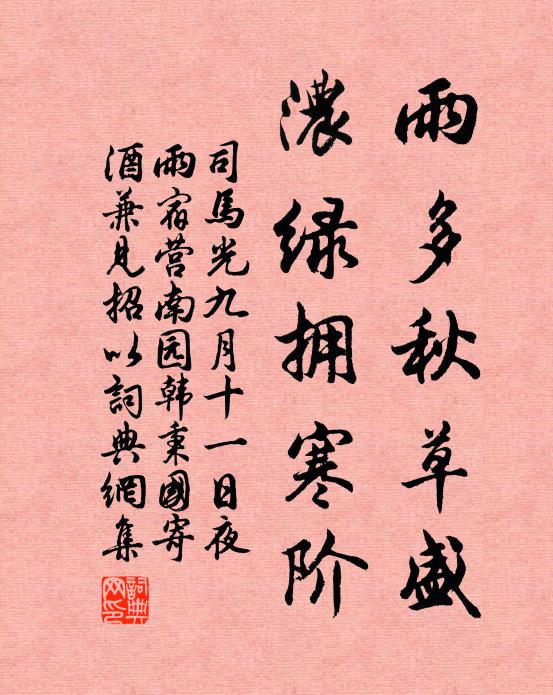 雨多秋草盛
濃绿拥寒阶
司馬光九月十一日夜
雨宿营南园韩秉國寄
酒兼見招以詞典網集
詞典网印